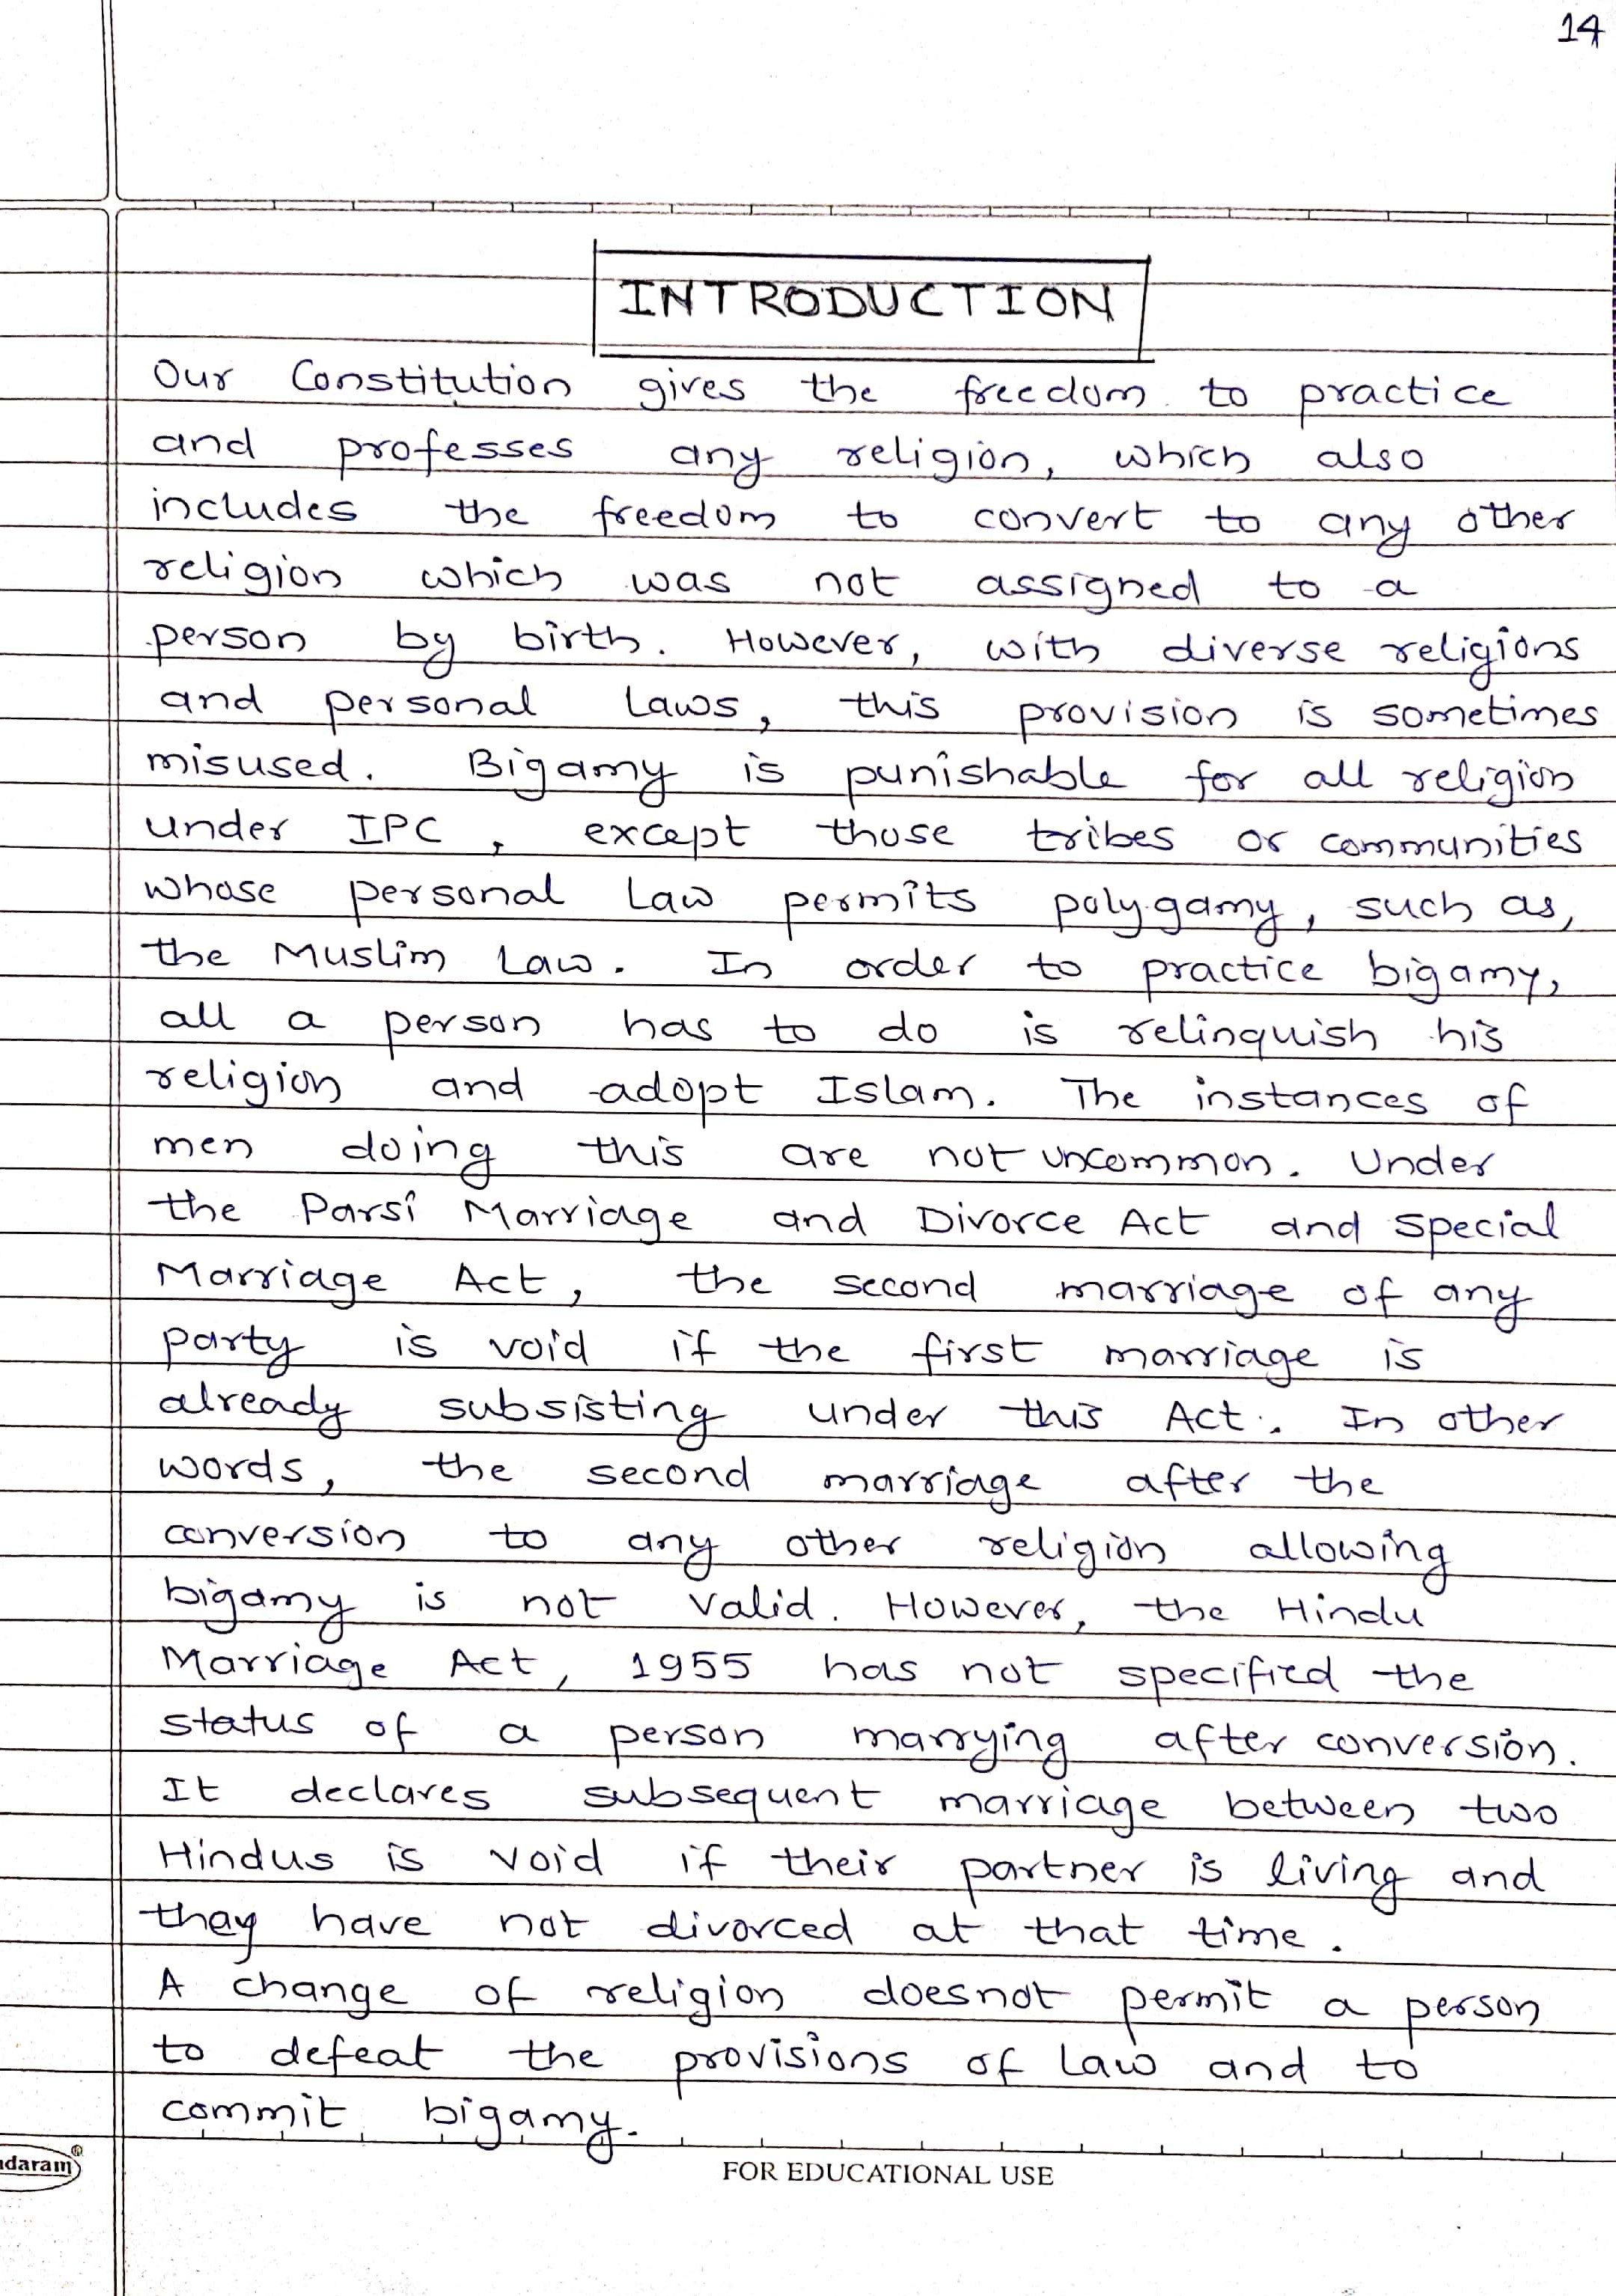 14
INTRODUCTION
Our Constitution gives the freedom to practice
and professes any religion, which also
includes the freedom to convert to any other
religion which was not assigned to a
person by birth. However, with diverse religions
and personal laws, this provision is sometimes
misused. Bigamy is punishable for all religion
under IPC, except those tribes or communities
whose personal law permits polygamy, such as,
the Muslim Law. In order to practice bigamy,
all a person has to do is relinquish his
religion and adopt Islam. The instances of
men doing this are not uncommon. Under
the Parsi Marriage and Divorce Act and special
Marriage Act, the second marriage of any
party is void if the first marriage is
already subsisting under this Act. In other
words, the second marriage after the
conversion to any other religion allowing
bigamy is not valid. However, the Hindu
Marriage Act, 1955 has not specified the
status of a person marrying after conversion.
It declares subsequent marriage between two
Hindus is void if their partner is living and
they have not divorced at that time.
A change of religion doesnot permit a person
to defeat the provisions of law and to
commit bigamy.
daram®
FOR EDUCATIONAL USE